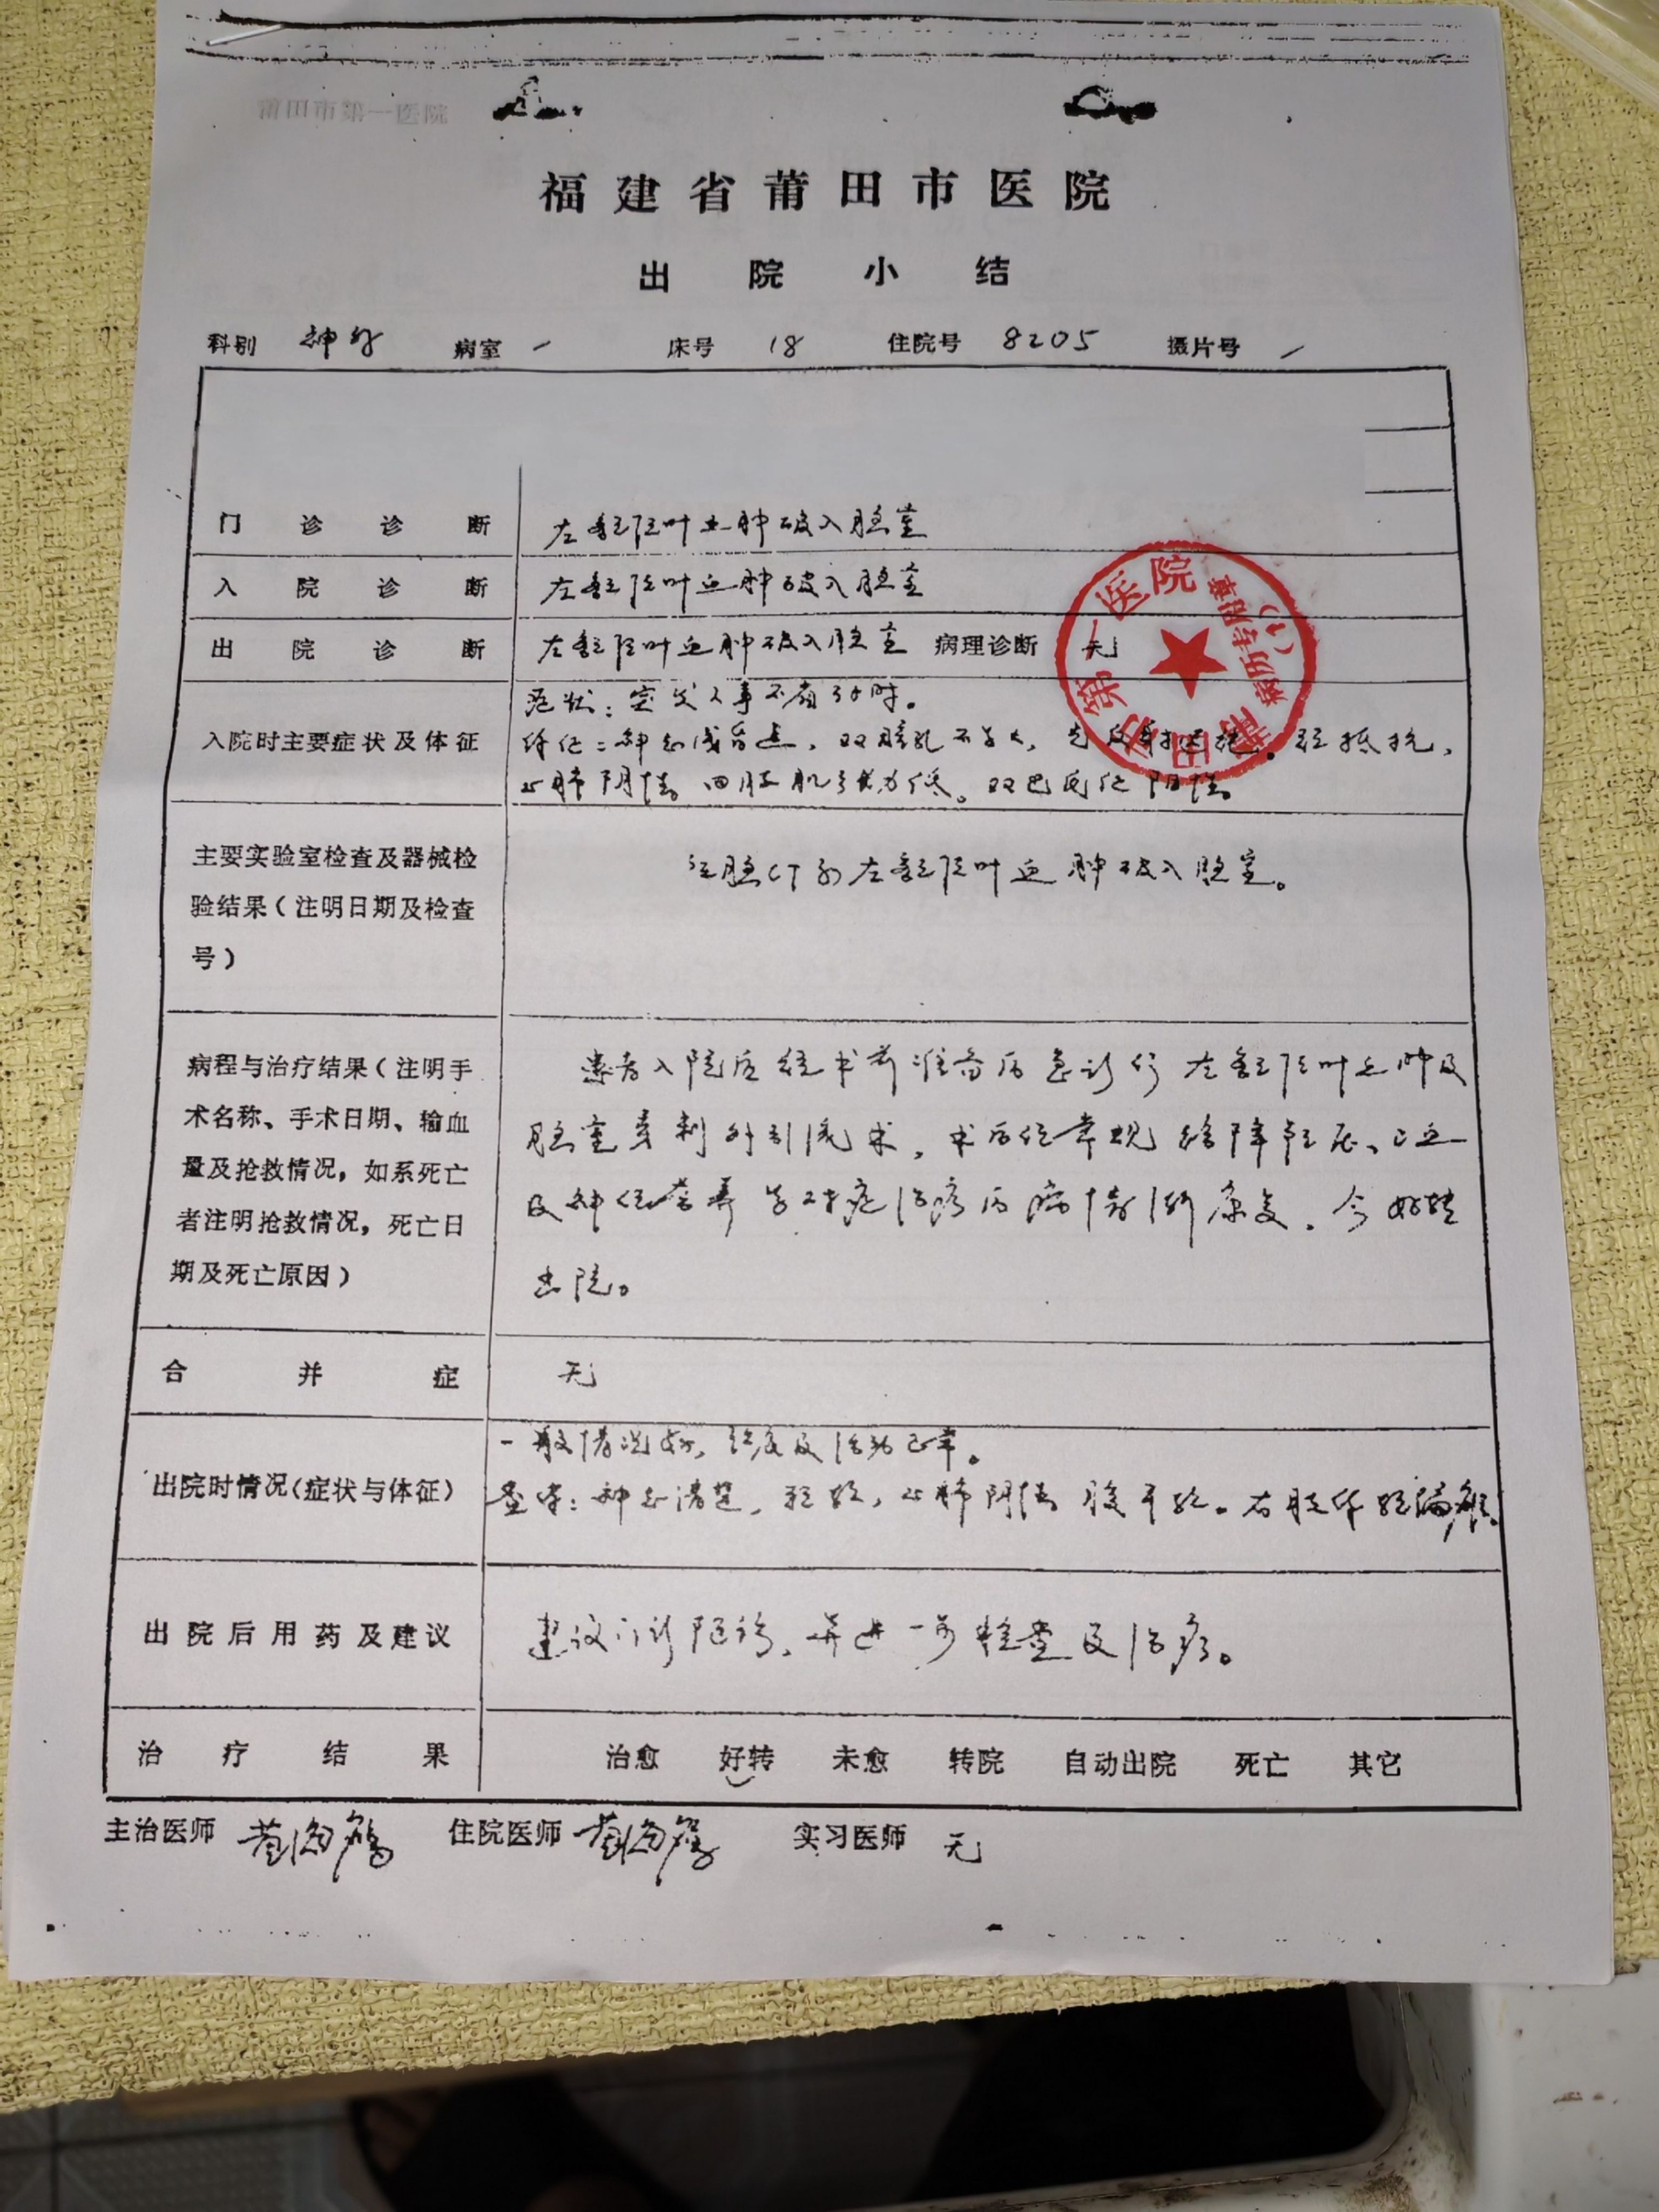 莆田市第一医院
福建省莆田市医院
出院小结
科别 神外 病室 / 床号 18 住院号 8205 摄片号 /
门诊诊断 左额颞叶血肿破入脑室
入院诊断 左额颞叶血肿破入脑室
出院诊断 左额颞叶血肿破入脑室 病理诊断 无
莆田市第一医院
病历专用章
(1)
症状:突发人事不省 小时。
入院时主要症状及体征
体征:神志浅昏迷,双瞳孔不等大,光反射 。颈抵抗,
心肺阴性 四肢肌张力低。双巴氏征阳性。
主要实验室检查及器械检
验结果(注明日期及检查
号)
颅脑CT示左额颞叶血肿破入脑室。
病程与治疗结果(注明手
术名称、手术日期、输血
量及抢救情况,如系死亡
者注明抢救情况,死亡日
期及死亡原因)
患者入院后经术前准备后急诊行左额颞叶血肿及
脑室穿刺外引流术,术后经常规给降颅压、止血
及神经营养等对症治疗后病情渐康复,今好转
出院。
合并症 无
一般情况好, 及活动正常。
出院时情况(症状与体征)
查体:神志清楚,颈软,心肺阴性 腹平软。右肢体轻偏瘫。
出院后用药及建议 建议门诊随诊,并进一步检查及治疗。
治疗结果 治愈 好转 未愈 转院 自动出院 死亡 其它
主治医师 住院医师 实习医师 无